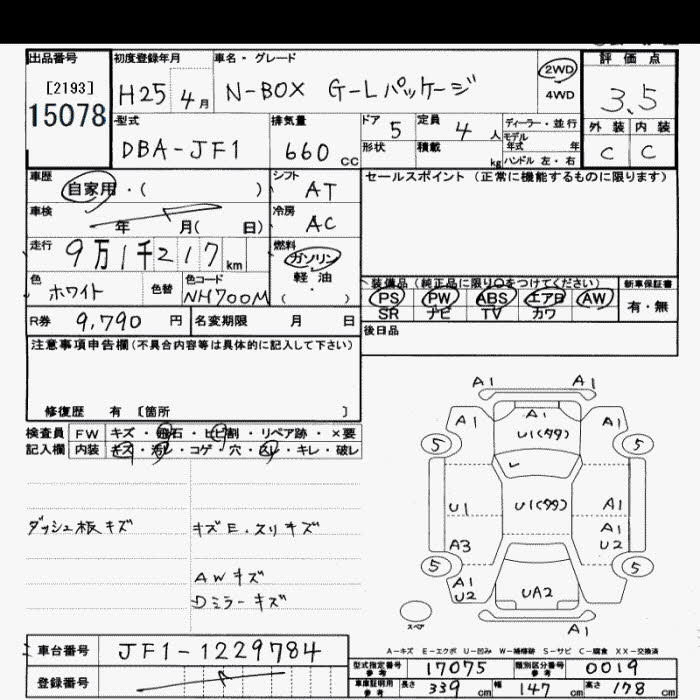 出品番号 初度登録年月 車名・グレード 評価点
[2193] H25 4月 N-BOX G-Lパッケージ 2WD 4WD 3.5
15078
型式 排気量 ドア 定員 ディーラー・並行 外装 内装
DBA-JF1 660cc 5 4人 モデル年式 年 C C
形状 積載 kg ハンドル 左・右
車歴 シフト セールスポイント（正常に機能するものに限ります）
自家用・（ ） AT
車検 冷房
年 月（ 日） AC
走行 燃料
9万1千217km ガソリン
軽・油
色 色替 色コード （・ ）
ホワイト NH700M
装備品（純正品に限り○をつけてください） 新車保証書
PS PW ABS エアB AW 有・無
SR ナビ TV カワ
R券 9,790円 名変期限 月 日
後日品
注意事項申告欄（不具合内容等は具体的に記入して下さい）
修復歴 有 〔箇所 〕
検査員 FW キズ・飛石・ヒビ割・リペア跡・×要
記入欄 内装 キズ・汚レ・コゲ・穴・凶レ・キレ・破レ
ダッシュ板キズ キズE.スリキズ
AWキズ
Dミラーキズ
A1 A1
A1 A1 A1
5 U1(タタ) 5
U1 U1(タタ) A1
A1
A3 U2
5 5
A1
U2 UA2
スペア
A1
A-キズ E-エクボ U-凹み W-補修跡 S-サビ C-腐食 XX-交換済
車台番号 JF1-1229784
型式指定番号 参考 17075 類別区分番号 参考 0019
登録番号
車庫証明用 参考 長さ 339cm 幅 147cm 高さ 178cm